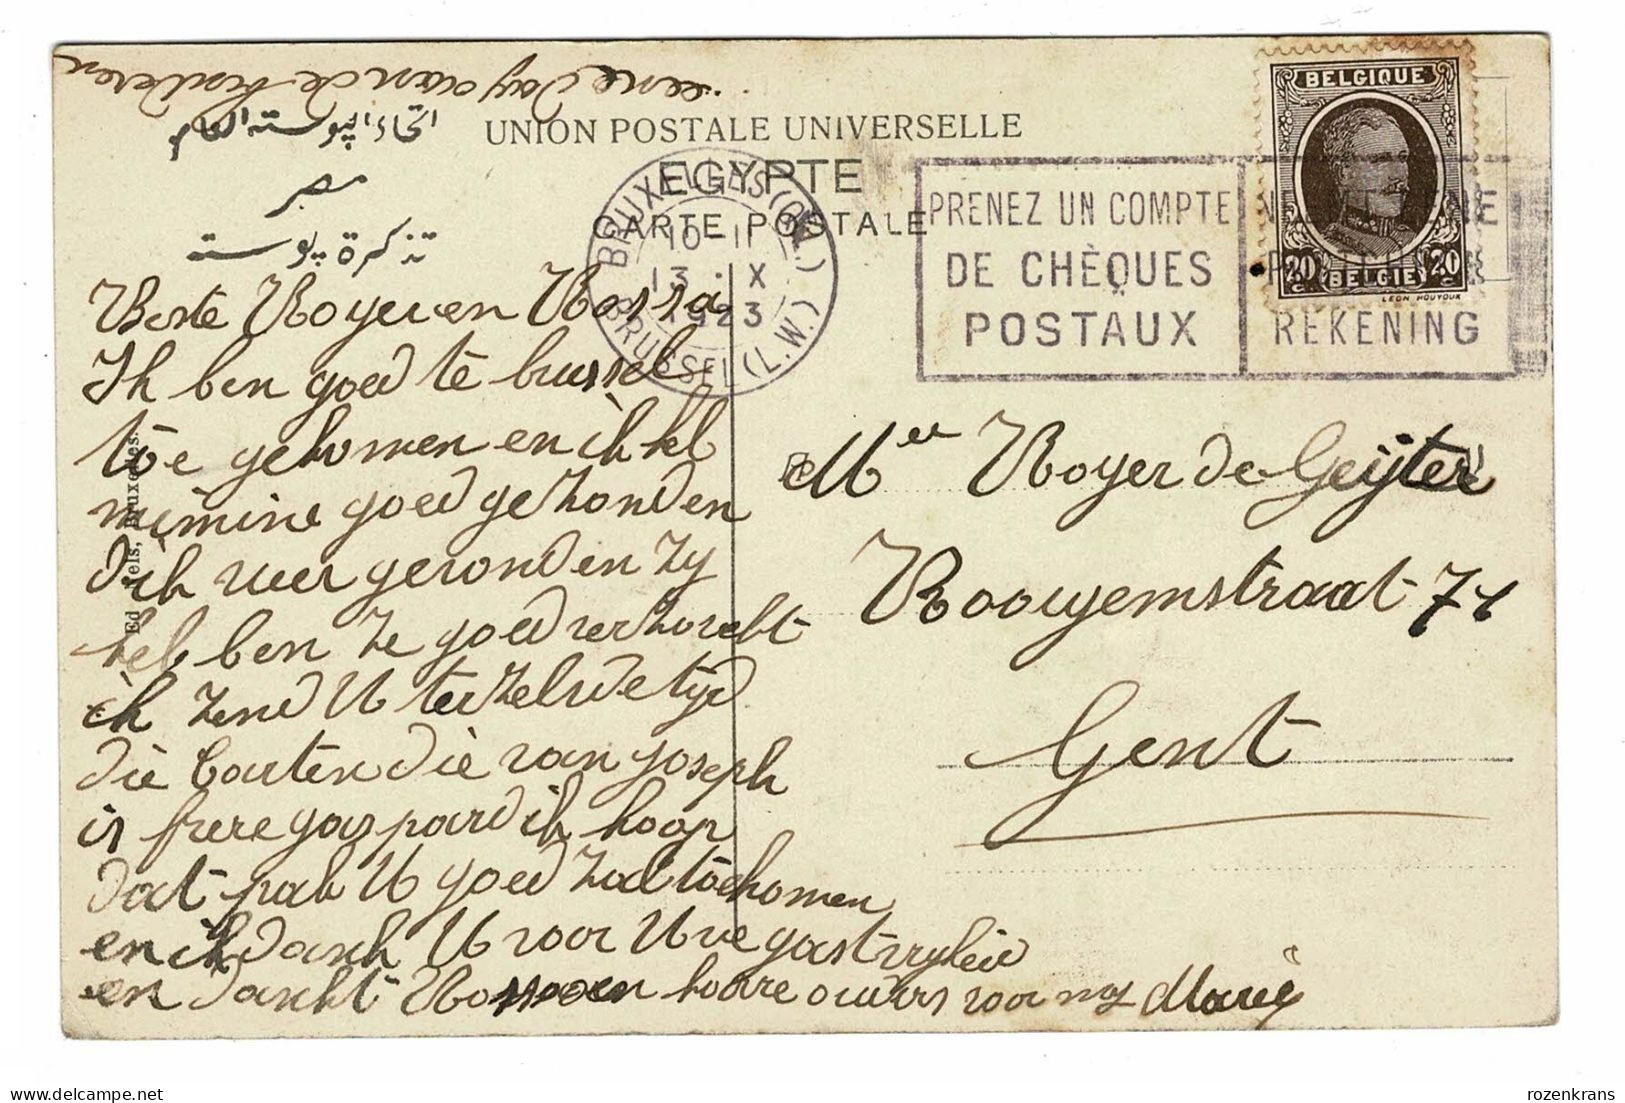 اتحاد البوسته العام
مصر
تذكرة بوسته
UNION POSTALE UNIVERSELLE
EGYPTE
CARTE POSTALE
BRUXELLES (Q.L.)
10-11
13·X
1923
BRUSSEL (L.W.)
PRENEZ UN COMPTE
DE CHÈQUES
POSTAUX
REKENING
BELGIQUE
20 BELGIË 20
LEON HOUYOUX
Ed. Nels, Bruxelles.
Beste Royer en Rossa
Ik ben goed te brussel
toe gekomen en ik heb
mimine goed gezonden
dik weer gevonden zy
heb ben ze goed verzorcht
ik zend U terzelve tijd
die Carten die van Joseph
is frere gaspard ik hoop
dat pak U goed zal toekomen
en ik dank U voor Uwe gastvryheid
en dankt voor my Marie
Mer Royer de Geijter
Rooigemstraat 71
Gent
rozenkrans